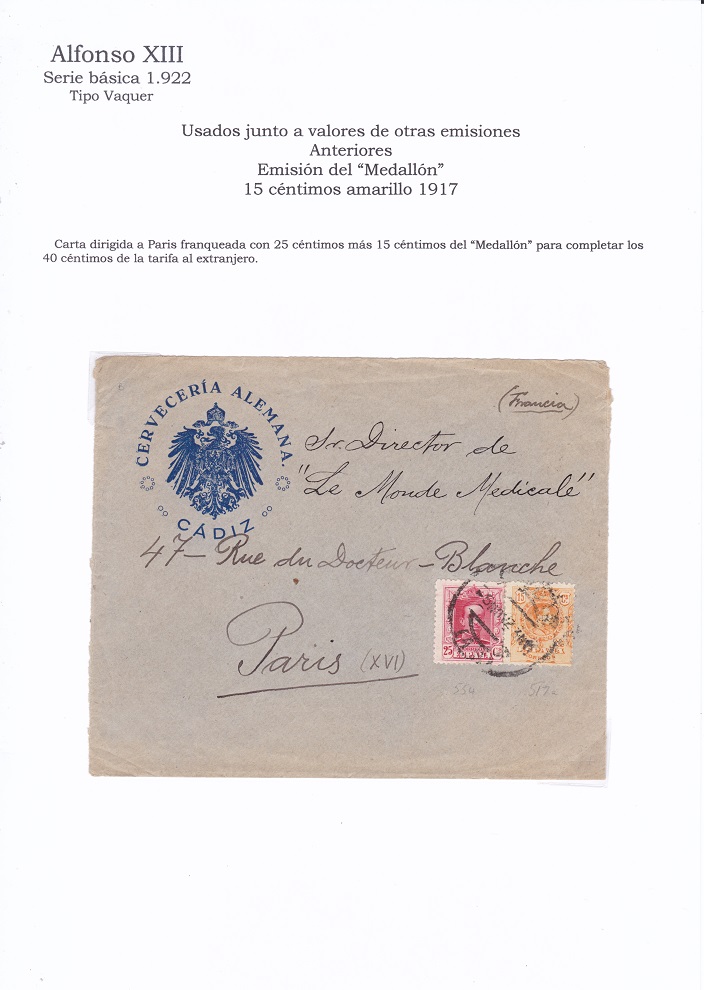 Alfonso XIII
Serie básica 1.922
Tipo Vaquer
Usados junto a valores de otras emisiones
Anteriores
Emisión del “Medallón”
15 céntimos amarillo 1917
Carta dirigida a Paris franqueada con 25 céntimos más 15 céntimos del “Medallón” para completar los
40 céntimos de la tarifa al extranjero.
CERVECERÍA ALEMANA.
CÁDIZ
(Francia)
Sr. Director de
"Le Monde Medicale"
47 — Rue du Docteur — Blanche
Paris (XVI)
25
15
554
517a